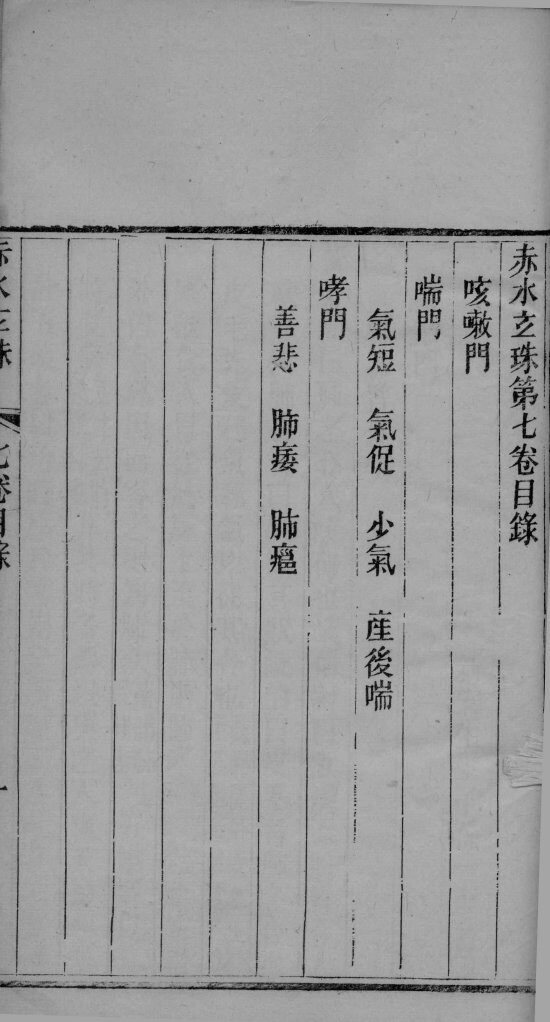 赤水玄珠第七卷目錄
咳嗽門
喘門
氣短　氣促　少氣　産後喘
哮門
善悲　肺痿　肺癰
赤水玄珠　七卷目錄　一